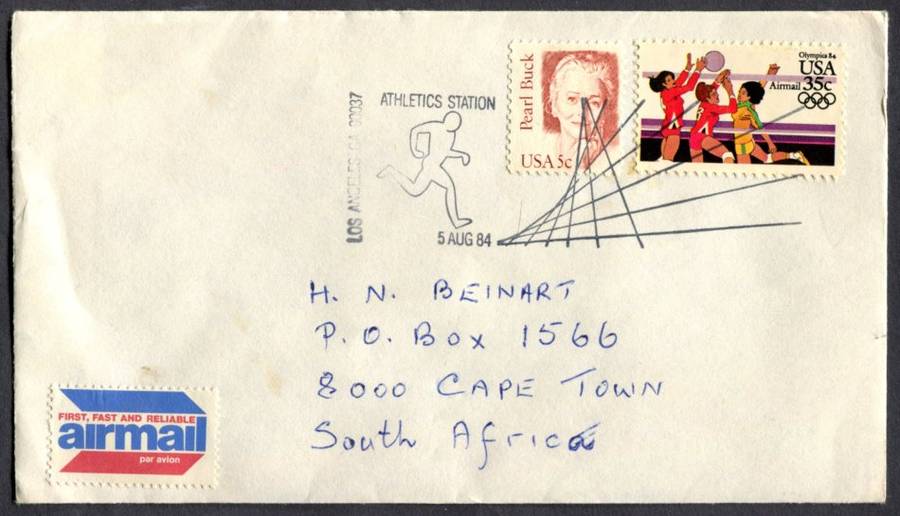 LOS ANGELES CA 90037
ATHLETICS STATION
5 AUG 84
Pearl Buck
USA 5c
Olympics 84
USA
Airmail 35c
H. N. BEINART
P. O. Box 1566
8000 CAPE TOWN
South Africa
FIRST, FAST AND RELIABLE
airmail
par avion